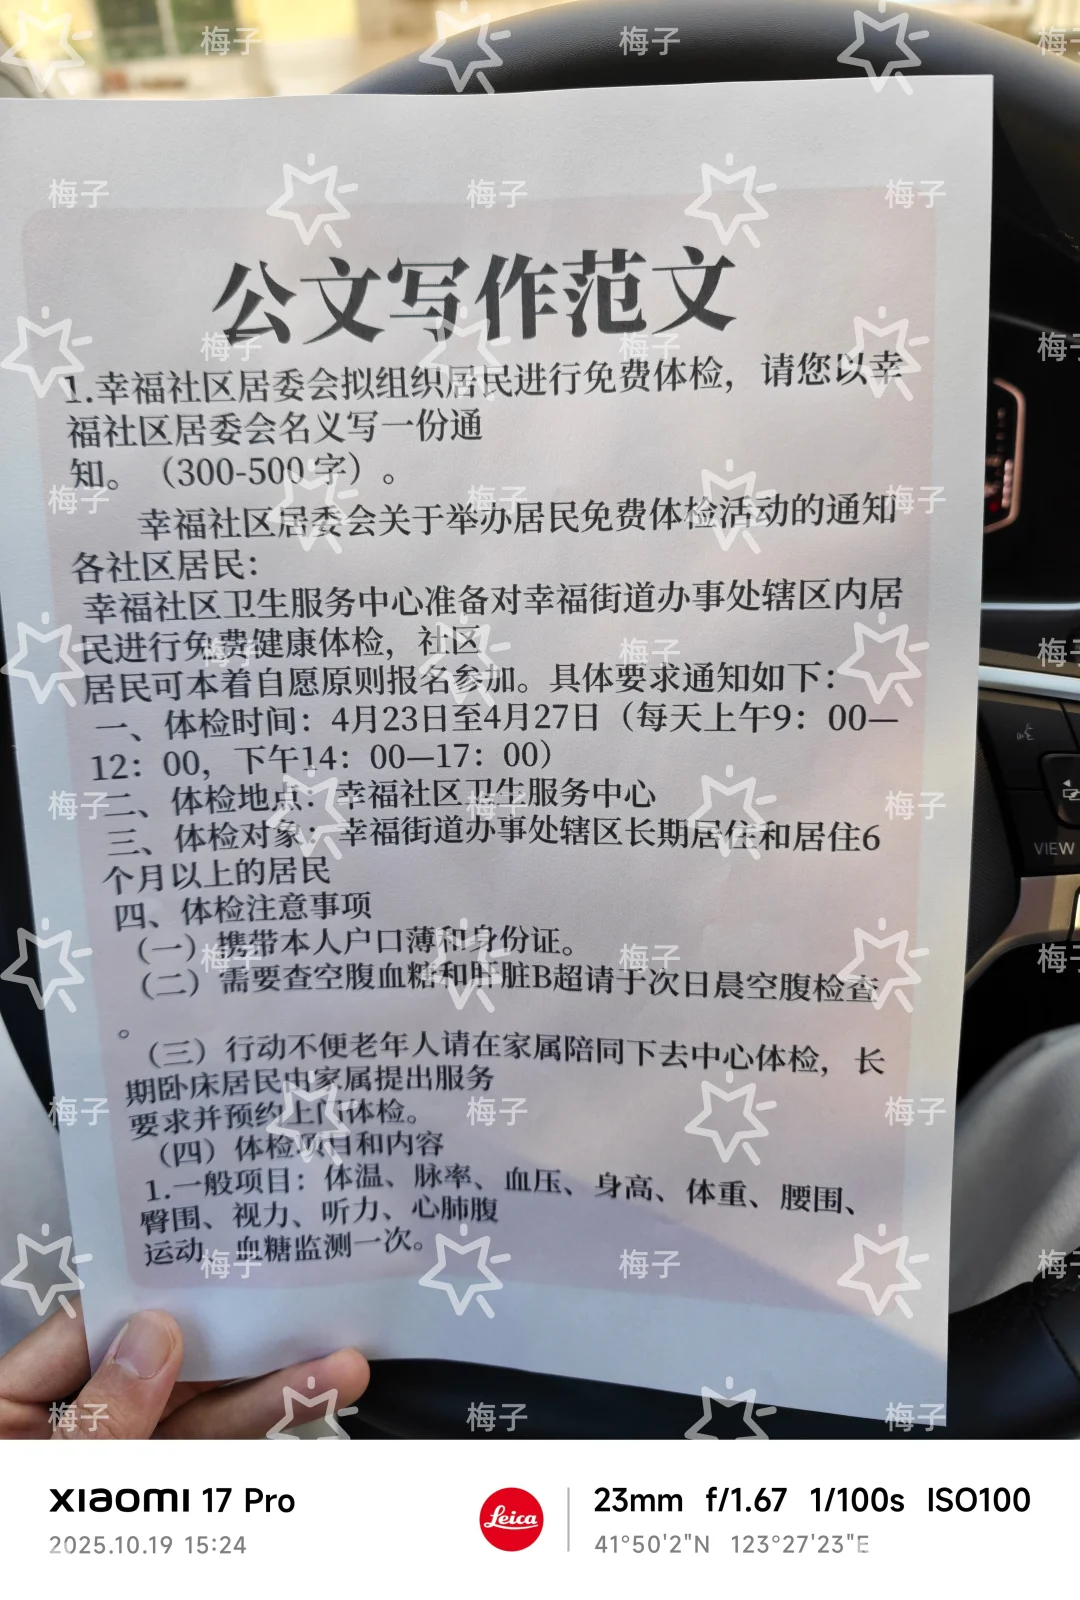 公文写作范文
1.幸福社区居委会拟组织居民进行免费体检，请您以幸
福社区居委会名义写一份通
知。（300-500字）。
幸福社区居委会关于举办居民免费体检活动的通知
各社区居民：
幸福社区卫生服务中心准备对幸福街道办事处辖区内居
民进行免费健康体检，社区
居民可本着自愿原则报名参加。具体要求通知如下：
一、体检时间：4月23日至4月27日（每天上午9：00—
12：00，下午14：00—17：00）
二、体检地点：幸福社区卫生服务中心
三、体检对象：幸福街道办事处辖区长期居住和居住6
个月以上的居民
四、体检注意事项
（一）携带本人户口薄和身份证。
（二）需要查空腹血糖和肝脏B超请于次日晨空腹检查
。
（三）行动不便老年人请在家属陪同下去中心体检，长
期卧床居民由家属提出服务
要求并预约上门体检。
（四）体检项目和内容
1.一般项目：体温、脉率、血压、身高、体重、腰围、
臀围、视力、听力、心肺腹
运动、血糖监测一次。
VIEW
梅子
xiaomi 17 Pro
2025.10.19 15:24
Leica
23mm f/1.67 1/100s ISO100
41°50'2"N 123°27'23"E